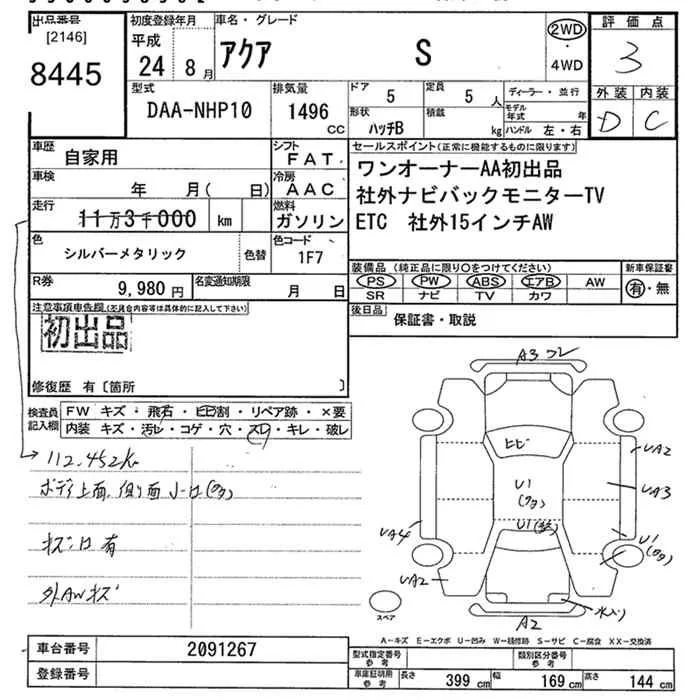 出品番号
[2146]
8445
初度登録年月
平成
24 8月
車名・グレード
アクア S
2WD
・
4WD
評価点
3
外装 内装
D C
型式
DAA-NHP10
排気量
1496
CC
ドア 5
定員 5 人
形状 ハッチB
積載 kg
ディーラー・並行
モデル年式 年
ハンドル 左・右
車歴 自家用
シフト FAT
車検 年 月( 日)
冷房 AAC
走行 11万3千000 km
燃料 ガソリン
色 シルバーメタリック 色替
色コード 1F7
R券 9,980円
名変通知期限 月 日
セールスポイント(正常に機能するものに限ります)
ワンオーナーAA初出品
社外ナビバックモニターTV
ETC 社外15インチAW
装備品(純正品に限り○をつけてください)
PS PW ABS エアB AW
SR ナビ TV カワ
新車保証書
有・無
後日品
保証書・取説
注意事項車告欄(不具合内容等は具体的に記入して下さい)
初出品
修復歴 有〔箇所 〕
検査員記入欄
FW キズ・飛石・ヒビ割・リペア跡・×要
内装 キズ・汚レ・コゲ・穴・スレ・キレ・破レ
112,452k
ボディ上面、側面
キズ凹有
外AWキズ
A3
ヒビ
U1
U1
UA2
UA3
U1
UA4
UA2
A2
スペア
A-キズ E-エクボ U-凹み W-補修跡 S-サビ C-腐食 XX-交換済
車台番号 2091267
登録番号
型式指定番号 参考
類別区分番号 参考
車庫証明用 参考
長さ 399 cm
幅 169 cm
高さ 144 cm